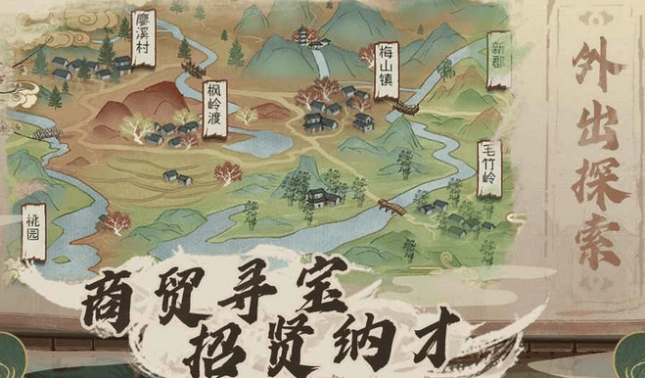 廖溪村
枫岭渡
梅山镇
新郡
毛竹岭
桃园
外出探索
商贸寻宝
招贤纳才